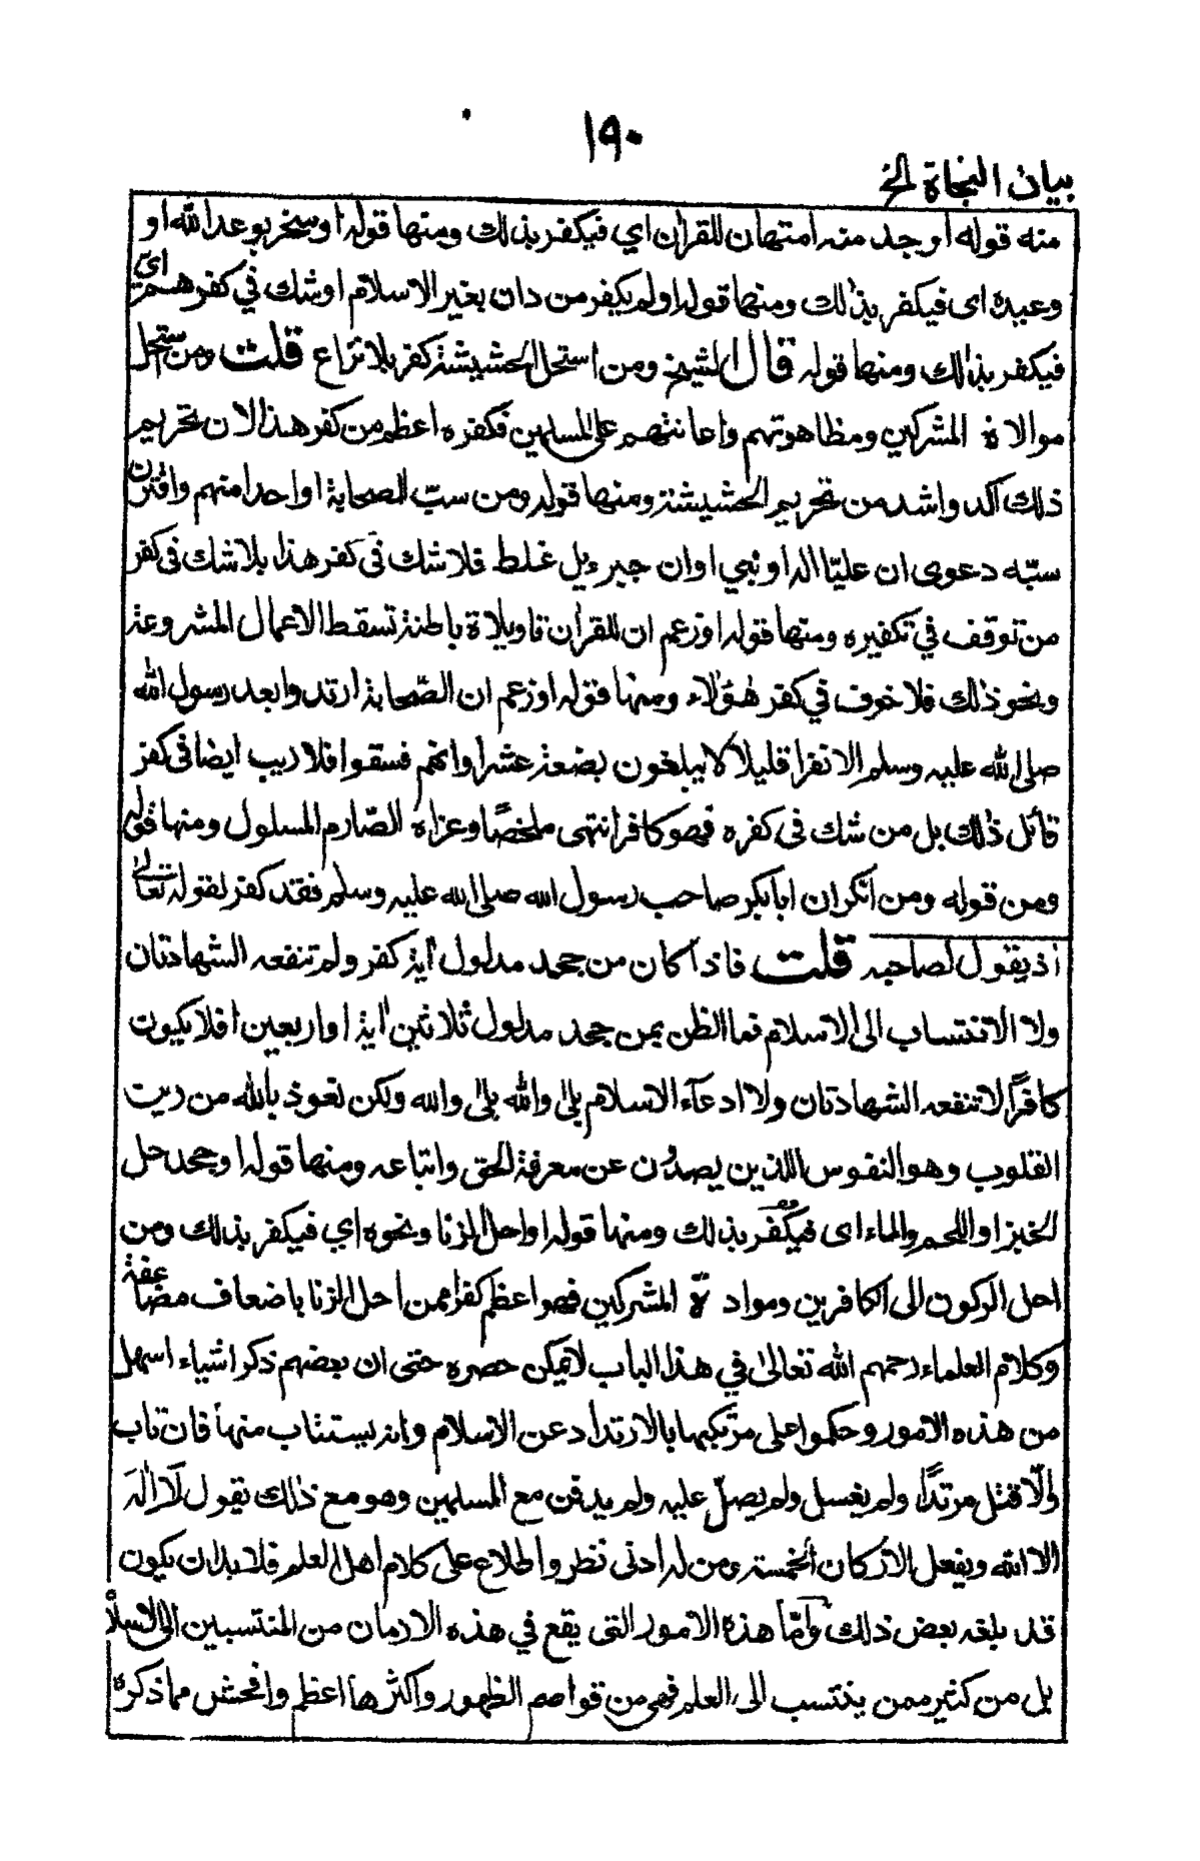 ١٩٠
بيان النجاة الخ
منه قوله او جد منه امتهان للقرآن اي فيكفر بذلك ومنها قوله او سخر بوعد الله او
وعيده اى فيكفر بذلك ومنها قوله او لم يكفر من دان بغير الاسلام او شك في كفرهم اى
فيكفر بذلك ومنها قوله قال الشيخ ومن استحل الحشيشة كفر بلا نزاع قلت ومن استحل
موالاة المشركين ومظاهرتهم واعانتهم على المسلمين فكفره اعظم من كفر هذا لان تحريم
ذلك آكد واشد من تحريم الحشيشة ومنها قوله ومن سبّ الصحابة او احدا منهم واقترن
سبّه دعوى ان عليّا اله او نبي او ان جبرءيل غلط فلا شك فى كفر هذا بلا شك فى كفر
من توقف في تكفيره ومنها قوله او زعم ان للقرآن تاويلاة باطنة تسقط الاعمال المشروعة
ونحو ذلك فلا خوف في كفر هؤلاء ومنها قوله او زعم ان الصّحابة ارتدوا بعد رسول الله
صلى الله عليه وسلم الا نفرا قليلا لا يبلغون بضعة عشر او انهم فسقوا فلا ريب ايضا فى كفر
قائل ذلك بل من شك فى كفره فهو كافر انتهى ملخصًا وعزاه الصّارم المسلول ومنها قوله
ومن قوله ومن انكر ان ابا بكر صاحب رسول الله صلى الله عليه وسلم فقد كفر لقوله تعالى
اذ يقول لصاحبه قلت فاذا كان من جحد مدلول آية كفر ولم تنفعه الشهادتان
ولا الانتساب الى الاسلام فما الظن بمن جحد مدلول ثلاثين آية او اربعين افلا يكون
كافرًا لا تنفعه الشهادتان ولا ادعآء الاسلام بلى والله بلى والله ولكن نعوذ بالله من رين
القلوب وهو النفوس اللذين يصدّن عن معرفة الحق واتباعه ومنها قوله او جحد حل
الخبز او اللحم والماء اى فيكفر بذلك ومنها قوله او احل الزنا ونحوه اي فيكفر بذلك ومن
احل الركون الى الكافرين وموادة المشركين فهو اعظم كفرا ممن احل الزنا باضعاف مضاعفة
وكلام العلماء رحمهم الله تعالى في هذا الباب لا يمكن حصره حتى ان بعضهم ذكر اشياء اسهل
من هذه الامور وحكموا على مرتكبها بالارتداد عن الاسلام وانه يستتاب منها فان تاب
والّا قتل مرتدًّا ولم يغسل ولم يصلّ عليه ولم يدفن مع المسلمين وهو مع ذلك يقول لا اله
الا الله ويفعل الاركان الخمسة ومن له ادنى نظر واطلاع على كلام اهل العلم فلا بد ان يكون
قد بلغه بعض ذلك وامّا هذه الامور التى يقع في هذه الازمان من المنتسبين الى الاسلام
بل من كثير ممن ينتسب الى العلم فهى من قواصم الظهور واكثرها اعظم وافحش مما ذكره